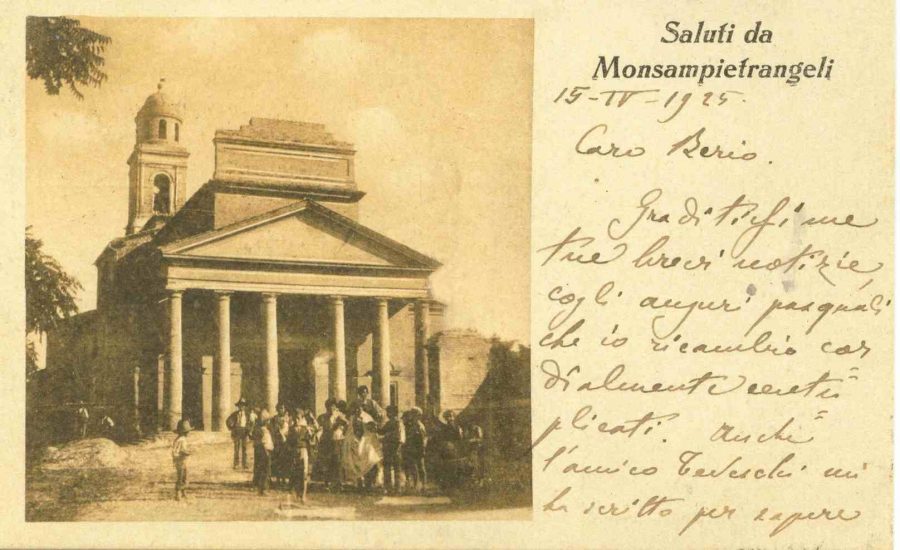 Saluti da
Monsampietrangeli
15-IV-1925.
Caro Berio.
Graditissime
tue brevi notizie
cogli auguri pasquali
che io ricambio cor
dialmente centu=
plicati. Anche
l'amico Tedeschi mi
ha scritto per sapere